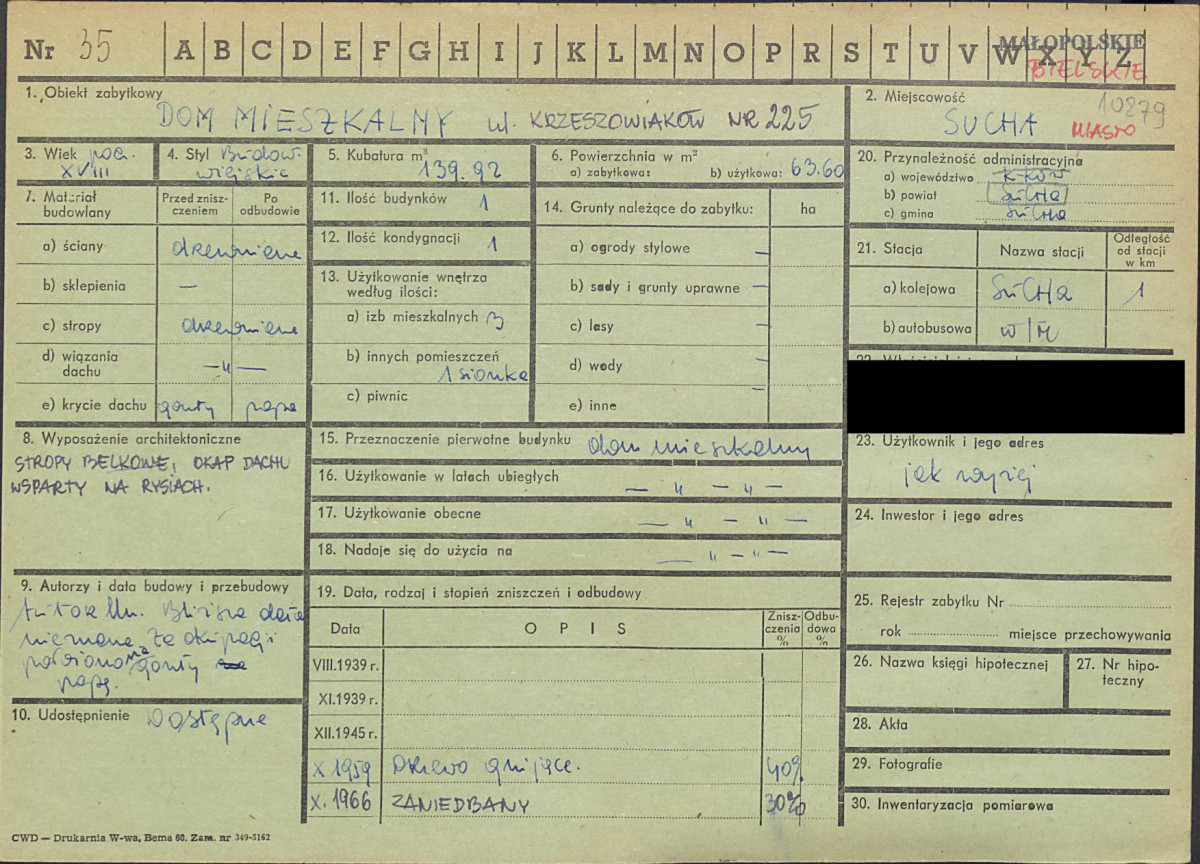 Nr 35 A B C D E F G H I J K L M N O P R S T U V W X Y Z
MAŁOPOLSKIE
BIELSKIE
1. Obiekt zabytkowy
DOM MIESZKALNY ul. KRZESZOWIAKÓW NR 225
2. Miejscowość 10279
SUCHA MIASTO
3. Wiek pocz.
XVIII
4. Styl Budow.
wiejskie
5. Kubatura m³
139.92
6. Powierzchnia w m²
a) zabytkowa: b) użytkowa: 63.60
7. Materiał budowlany
Przed zniszczeniem
Po odbudowie
a) ściany drewniane
b) sklepienia —
c) stropy drewniane
d) wiązania dachu — „ —
e) krycie dachu gonty papa
8. Wyposażenie architektoniczne
STROPY BELKOWE, OKAP DACHU
WSPARTY NA RYSIACH.
9. Autorzy i data budowy i przebudowy
Autor nn. Bliższa data
nieznana. Za okupacji
położono na gonty
papę.
10. Udostępnienie Dostępne
11. Ilość budynków 1
12. Ilość kondygnacji 1
13. Użytkowanie wnętrza
według ilości:
a) izb mieszkalnych 3
b) innych pomieszczeń
1 sionka
c) piwnic
14. Grunty należące do zabytku: ha
a) ogrody stylowe —
b) sady i grunty uprawne —
c) lasy —
d) wody —
e) inne —
15. Przeznaczenie pierwotne budynku dom mieszkalny
16. Użytkowanie w latach ubiegłych — „ — „ —
17. Użytkowanie obecne — „ — „ —
18. Nadaje się do użycia na — „ — „ —
19. Data, rodzaj i stopień zniszczeń i odbudowy
Data O P I S Zniszczenia % Odbudowa %
VIII.1939 r.
XI.1939 r.
XII.1945 r.
X 1959 Drzewo gnijące. 40%
X. 1966 ZANIEDBANY 30%
20. Przynależność administracyjna
a) województwo K-ków
b) powiat SUCHA
c) gmina SUCHA
21. Stacja Nazwa stacji Odległość od stacji w km
a) kolejowa SUCHA 1
b) autobusowa w/m
23. Użytkownik i jego adres
jak wyżej
24. Inwestor i jego adres
25. Rejestr zabytku Nr
rok miejsce przechowywania
26. Nazwa księgi hipotecznej
27. Nr hipoteczny
28. Akta
29. Fotografie
30. Inwentaryzacja pomiarowa
CWD — Drukarnia W-wa, Bema 60. Zam. nr 349-5162